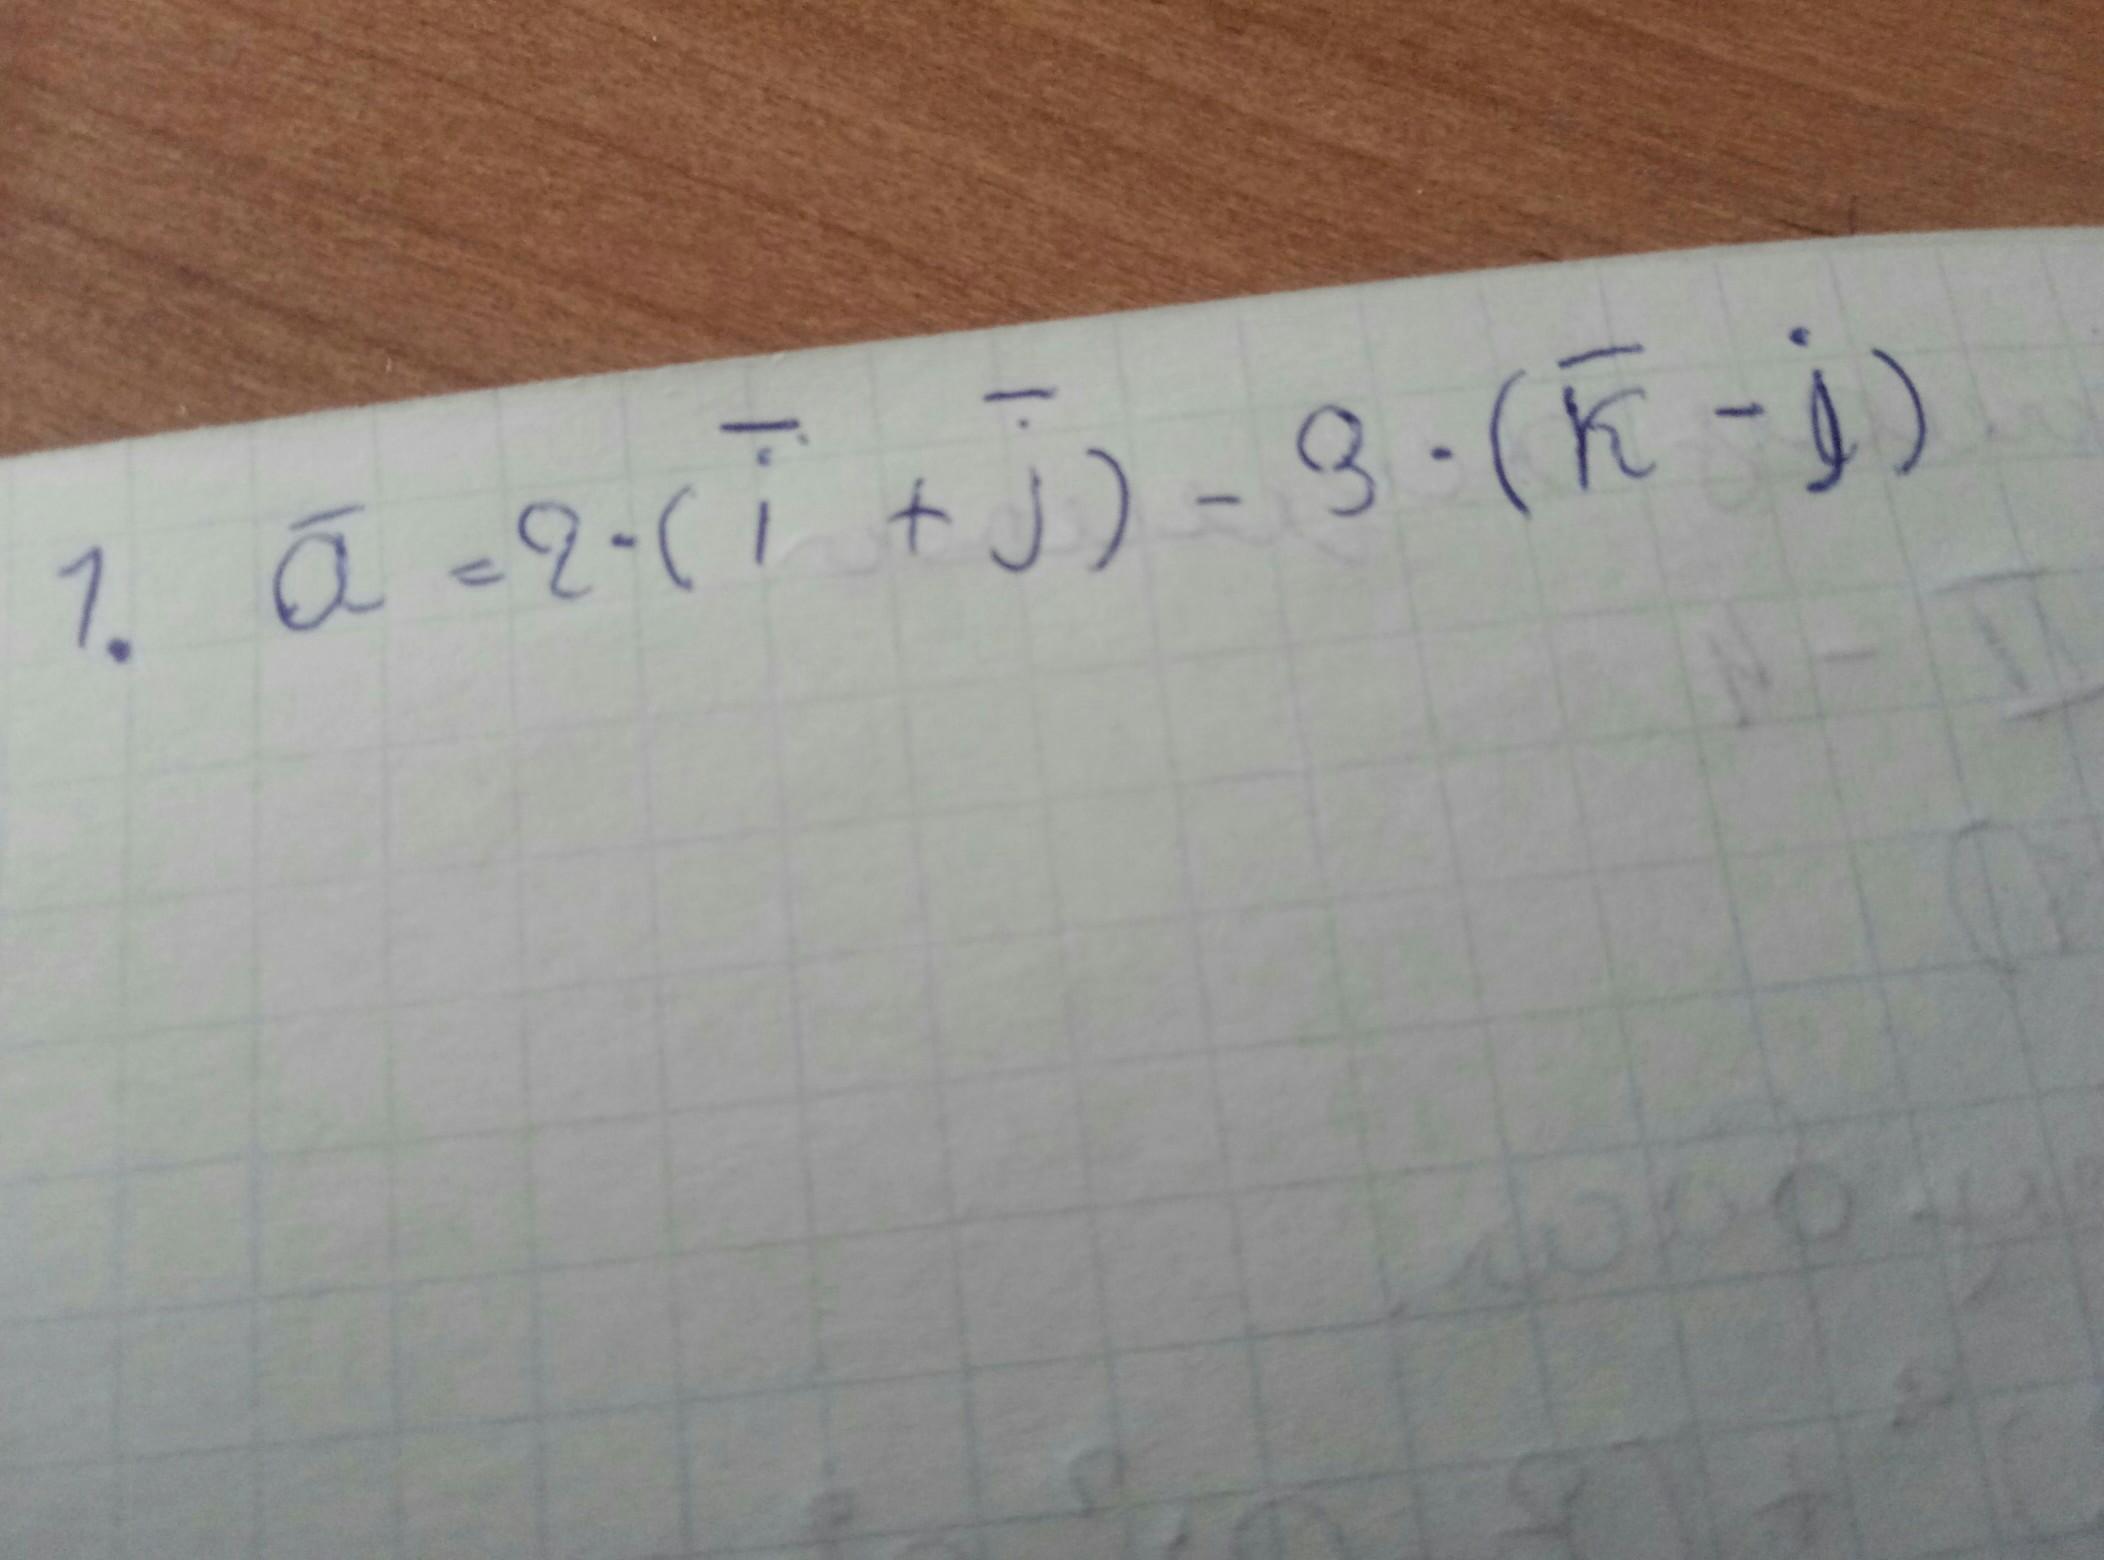 1. a̅ = 2·(i̅ + j̅) - 3·(k̅ - j)